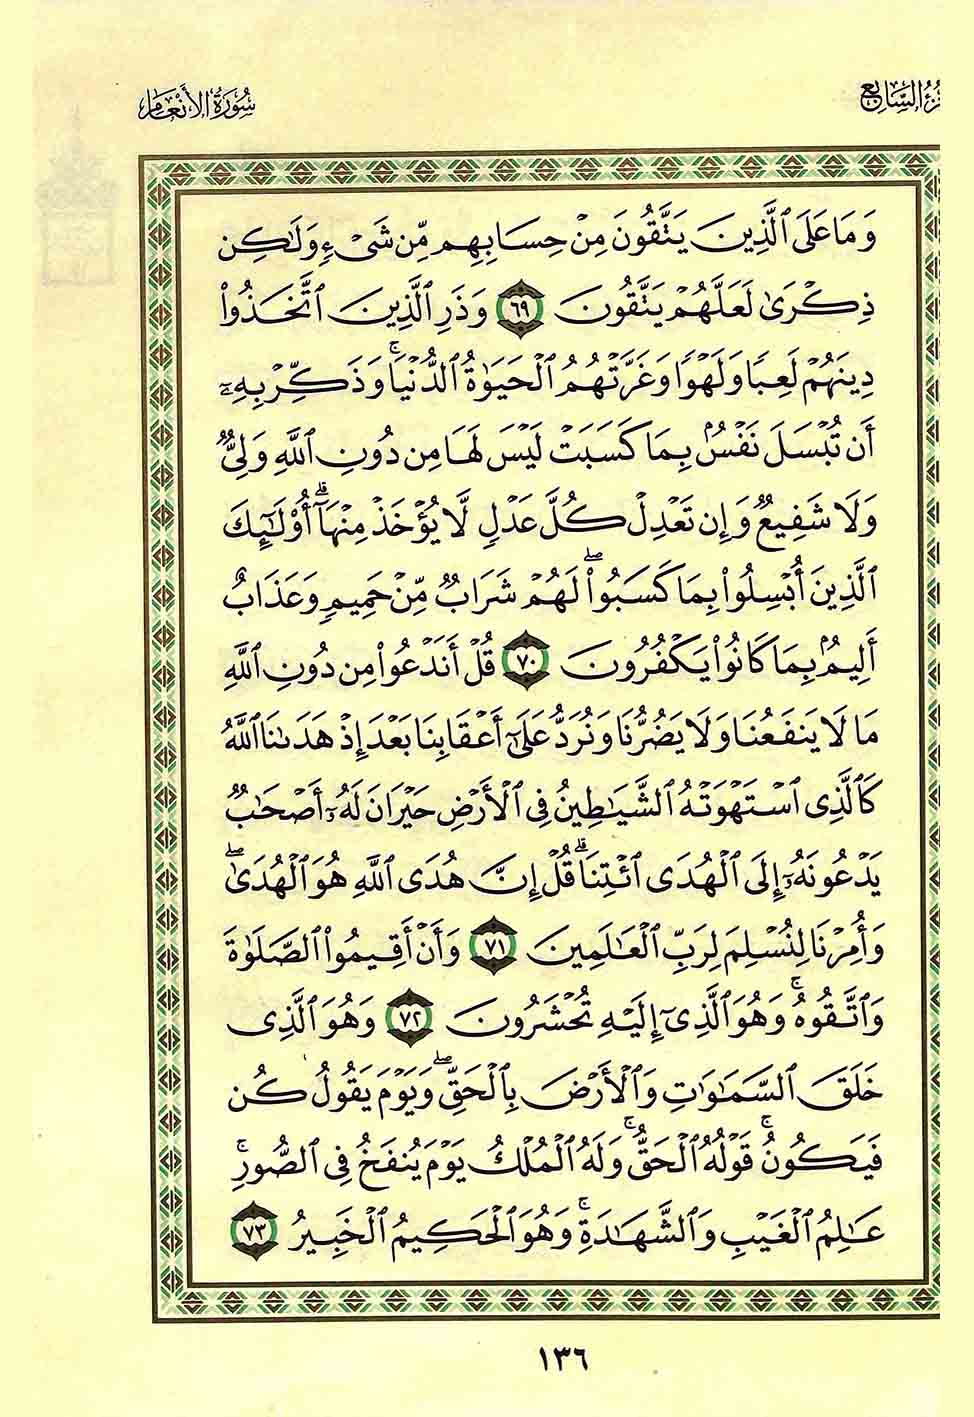 سُورَةُ الأَنْعَامِ
السَّابِعُ
وَمَا عَلَى ٱلَّذِينَ يَتَّقُونَ مِنْ حِسَابِهِم مِّن شَىْءٍ وَلَٰكِن
ذِكْرَىٰ لَعَلَّهُمْ يَتَّقُونَ ٦٩ وَذَرِ ٱلَّذِينَ ٱتَّخَذُوا۟
دِينَهُمْ لَعِبًا وَلَهْوًا وَغَرَّتْهُمُ ٱلْحَيَوٰةُ ٱلدُّنْيَا ۚ وَذَكِّرْ بِهِۦٓ
أَن تُبْسَلَ نَفْسٌۢ بِمَا كَسَبَتْ لَيْسَ لَهَا مِن دُونِ ٱللَّهِ وَلِىٌّ
وَلَا شَفِيعٌ وَإِن تَعْدِلْ كُلَّ عَدْلٍ لَّا يُؤْخَذْ مِنْهَآ ۗ أُو۟لَٰٓئِكَ
ٱلَّذِينَ أُبْسِلُوا۟ بِمَا كَسَبُوا۟ ۖ لَهُمْ شَرَابٌ مِّنْ حَمِيمٍ وَعَذَابٌ
أَلِيمٌۢ بِمَا كَانُوا۟ يَكْفُرُونَ ٧٠ قُلْ أَنَدْعُوا۟ مِن دُونِ ٱللَّهِ
مَا لَا يَنفَعُنَا وَلَا يَضُرُّنَا وَنُرَدُّ عَلَىٰٓ أَعْقَابِنَا بَعْدَ إِذْ هَدَىٰنَا ٱللَّهُ
كَٱلَّذِى ٱسْتَهْوَتْهُ ٱلشَّيَٰطِينُ فِى ٱلْأَرْضِ حَيْرَانَ لَهُۥٓ أَصْحَٰبٌ
يَدْعُونَهُۥٓ إِلَى ٱلْهُدَى ٱئْتِنَا ۗ قُلْ إِنَّ هُدَى ٱللَّهِ هُوَ ٱلْهُدَىٰ ۖ
وَأُمِرْنَا لِنُسْلِمَ لِرَبِّ ٱلْعَٰلَمِينَ ٧١ وَأَنْ أَقِيمُوا۟ ٱلصَّلَوٰةَ
وَٱتَّقُوهُ ۚ وَهُوَ ٱلَّذِىٓ إِلَيْهِ تُحْشَرُونَ ٧٢ وَهُوَ ٱلَّذِى
خَلَقَ ٱلسَّمَٰوَٰتِ وَٱلْأَرْضَ بِٱلْحَقِّ ۖ وَيَوْمَ يَقُولُ كُن
فَيَكُونُ ۚ قَوْلُهُ ٱلْحَقُّ ۚ وَلَهُ ٱلْمُلْكُ يَوْمَ يُنفَخُ فِى ٱلصُّورِ ۚ
عَٰلِمُ ٱلْغَيْبِ وَٱلشَّهَٰدَةِ ۚ وَهُوَ ٱلْحَكِيمُ ٱلْخَبِيرُ ٧٣
١٣٦